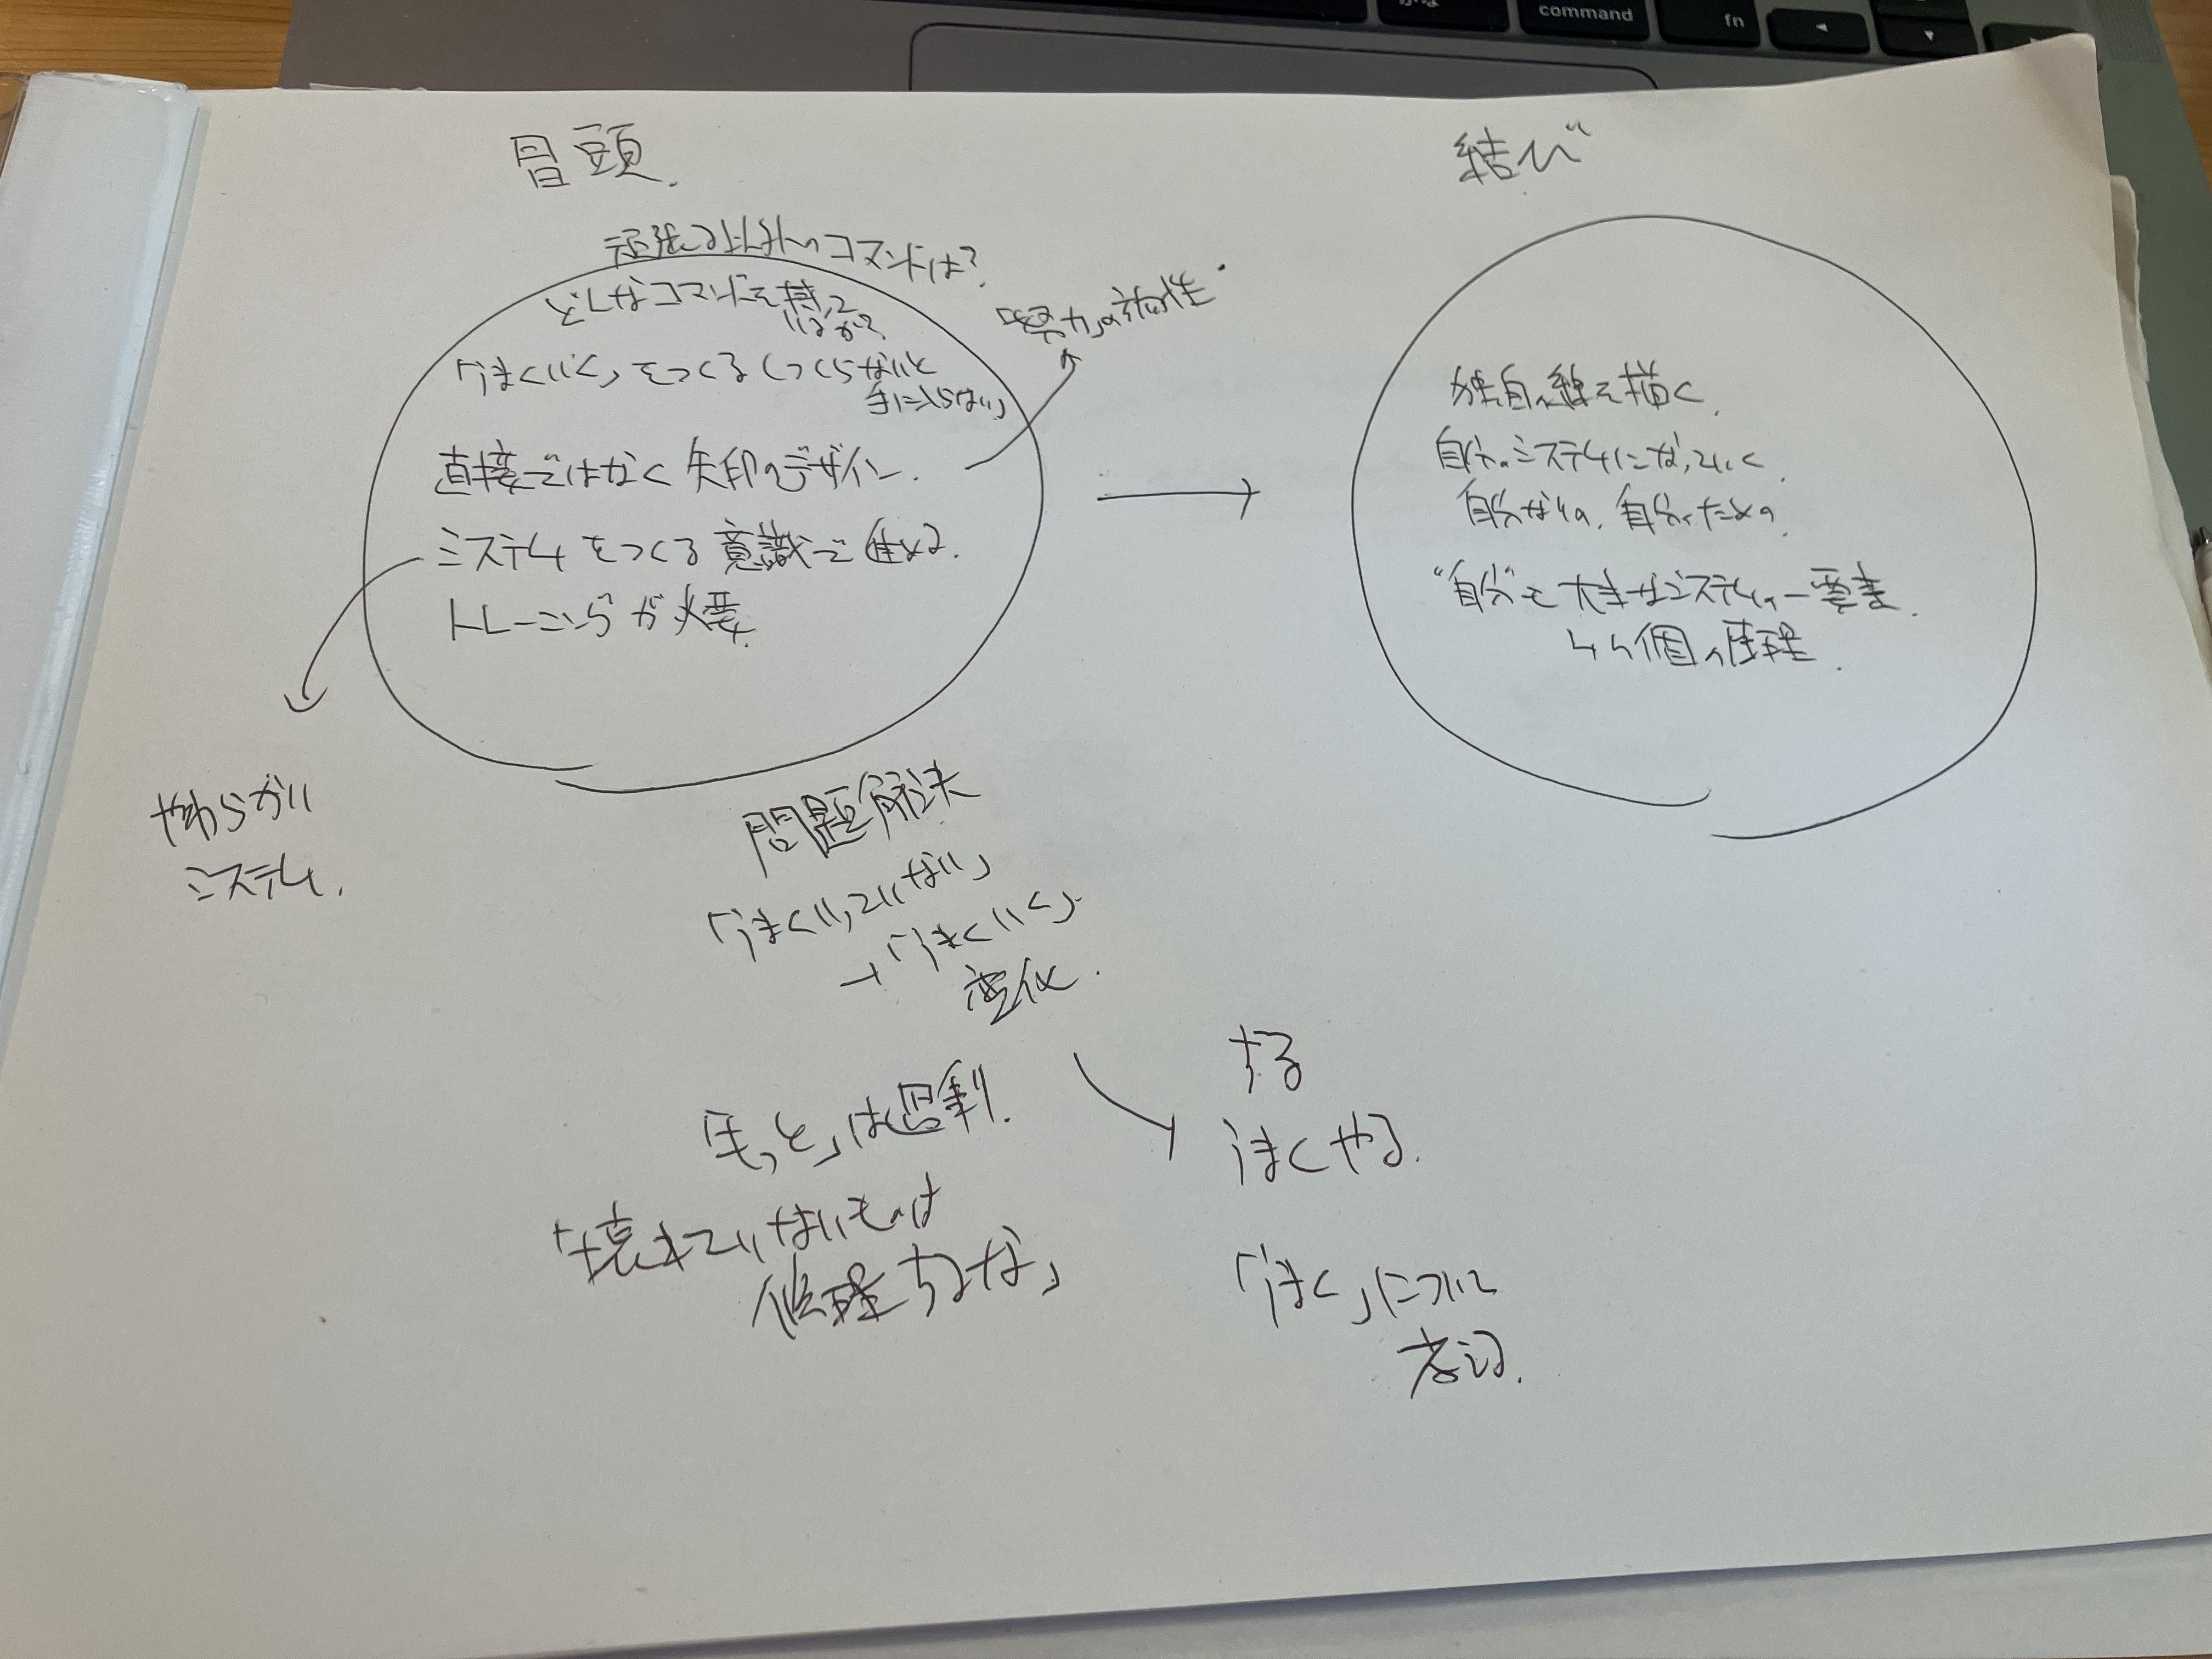 command
fn
冒頭.
結び
頑張る以外のコマンドは?
どんなコマンドを持って
いるか?
「うまくいく」をつくる(つくらないと
手に入らない)
直接ではなく矢印のデザイン.
「努力」の方向性.
システムをつくる意識で進める.
トレーニングが必要.
やわらかい
システム.
独自の線を描く.
自分のシステムになっていく
自分なりの、自分のための.
"自分"も大きなシステムの一要素.
個の原理.
問題解決
「うまくいっていない」
→「うまくいく」
変化.
「もっと」は過剰.
「壊れていないものは
修理するな」
する
うまくやる.
「うまく」について
考える.